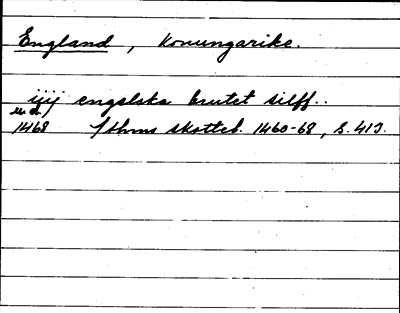 England, Konungarike.
iiij engelska brutet silff..
u. d.
1468 Sthms skotteb. 1460-68, S. 413.